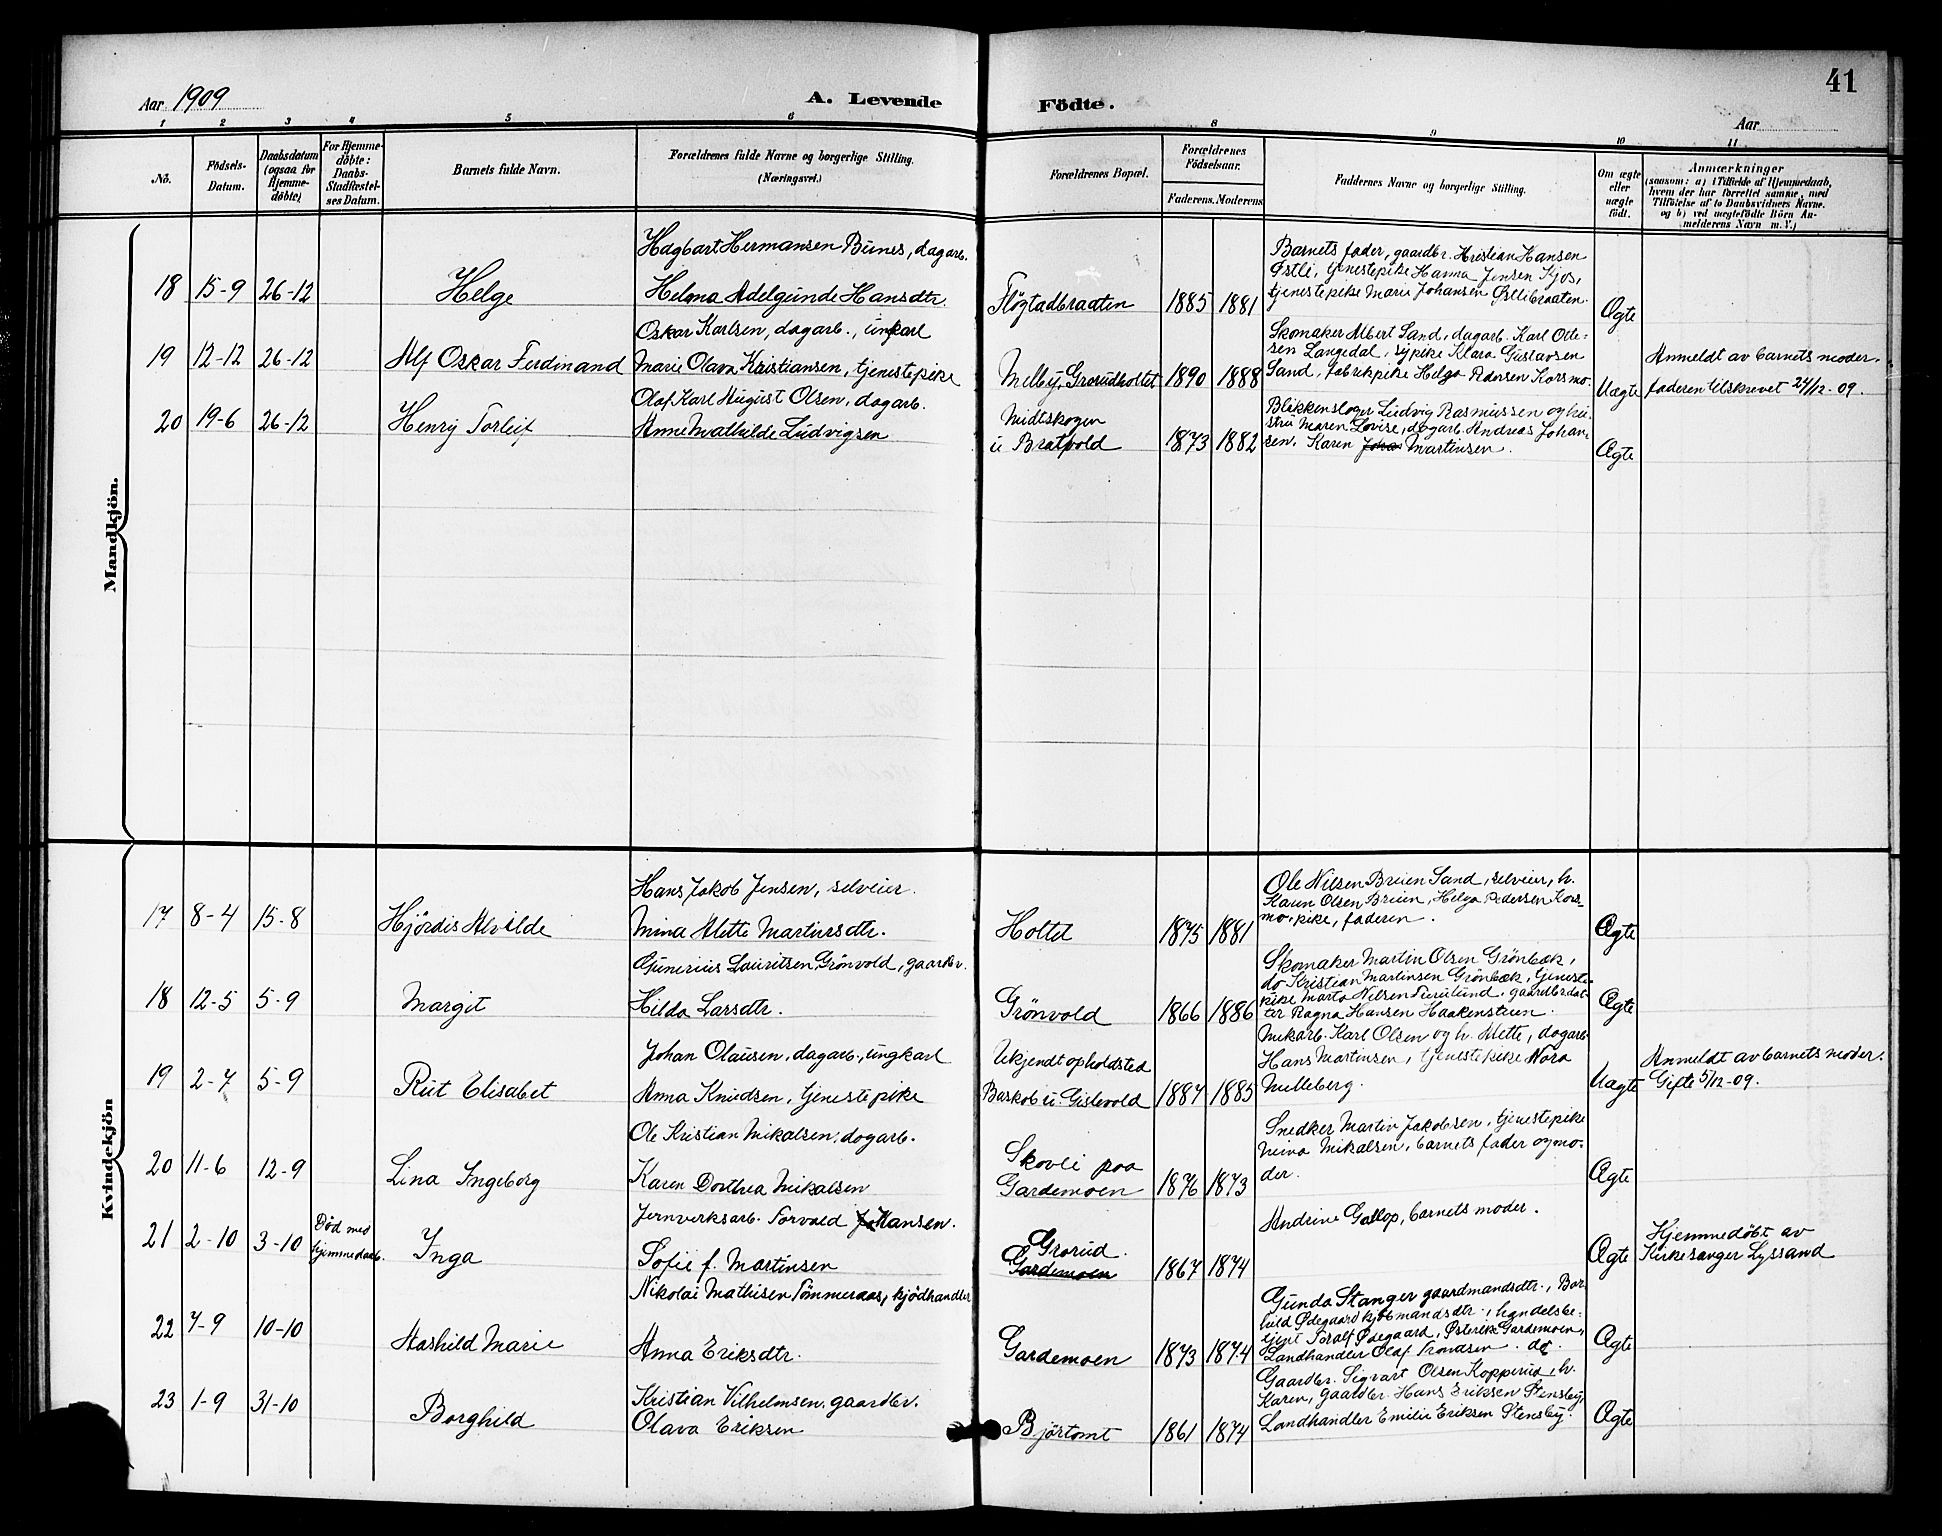 Aar 1909
A. Levende
Födte.
Aar
41
1 2 3 4 5 6 8 9 10 11
No.
Födsels-
Datum.
Daabsdatum
(ogsaa for
Hjemme-
döbte)
For Hjemme-
döbte:
Daabs-
Stadfæstel-
ses Datum.
Barnets fulde Navn.
Forældrenes fulde Navne og borgerlige Stilling.
(Næringsvei.)
Forældrenes Bopæl.
Forældrenes
Födselsaar.
Faderens. Moderens
Faddernes Navne og borgerlige Stilling.
Om ægte
eller
uægte
födt.
Anmærkninger
(saasom: a) i Tilfælde af Hjemmedaab,
hvem der har forrettet samme, med
Tilföielse af to Daabsvidners Navne.
og b) ved uægtefödte Börn An-
melderens Navn m. V.)
Mandkjön.
18 15-9 26-12
Helge
Hagbart Hermansen Bunes, dagarb.
Helma Adelgunde Hansdtr.
Fløgtadbraaten
1885 1881
Barnets fader, gaardbr. Kristian Hansen
Østli, tjenestepike Hanna Jensen Kjos,
tjenestepike Marie Johansen Østlibraaten.
Ægte
19 12-12 26-12
Alf Oskar Ferdinand
Oskar Karlsen, dagarb., unkarl
Marie Olava Kristiansen, tjenestepike
Melby, Grorudholtet
1890 1888
Skomaker Albert Sand, dagarb. Karl Otte-
sen Langedal, sypike Klara Gustavsen
Sand, fabrikpike Helga Pedersen Korsmo.
Uægte
Anmeldt av barnets moder.
faderen utskrevet 24/12-09.
20 19-6 26-12
Henry Torleif
Olaf Karl August Olsen, dagarb.
Anne Mathilde Ludvigsen
Midtskogen
u Bratvold
1873 1882
Blikkenslager Ludvig Rasmussen og hu-
stru Maren Lovise, dagarb. Andreas Johan-
sen, Karen Martinsen.
Ægte
Kvindekjön
17 8-4 15-8
Hjördis Alvilde
Hans Jakob Jensen, selveier.
Mina Alette Martinsdtr.
Holtet
1875 1881
Ole Nilsen Breien Sand, selveier, h.
Karen Olsen Breien, Helga Pedersen Kors-
mo, pike, faderen.
Ægte
18 12-5 5-9
Margit
Gunerius Lauritsen Grönvold, gaardbr.
Hilda Larsdtr.
Grönvold
1866 1886
Skomaker Martin Olsen Grönbæk,
do Kristian Martinsen Grönbæk, tjeneste-
pike Marta Nilsen Furulund, gaardbr.dat-
ter Ragna Hansen Haakenstuen.
Ægte
19 2-7 5-9
Rut Elisabet
Johan Olausen, dagarb., ungkarl
Anna Knudsen, tjenestepike
Ukjendt opholdsted
Baskob u. Gislevold
1887 1885
Mekarb. Karl Olsen og h. Alette, dagarb.
Hans Martinsen, tjenestepike Nora
Melleberg.
Uægte
Anmeldt av barnets moder.
Gifte 5/12-09.
20 11-6 12-9
Lina Ingeborg
Ole Kristian Mikalsen, dagarb.
Karen Dorthea Mikalsen
Skovli paa
Gardemoen
1876 1873
Snedker Martin Jakobsen, tjenestepike
Mina Mikalsen, barnets fader og mo-
der.
Ægte
21 2-10 3-10
Död med
hjemmedaab.
Inga
Jernverksarb. Torvald Johansen.
Sofie f. Martinsen
Grorud.
Gardemoen
1867 1874
Andrine Gallop, barnets moder.
Ægte
Hjemmedöbt av
Kirkesanger Lyssand
22 7-9 10-10
Aashild Marie
Nikolai Mathisen Tömmeraas, kjödhandler
Anna Eriksdtr.
Gardemoen
1873 1874
Gunda Stanger gaardmandsdtr., Bor-
hild Ødegaard kjöbmandsdtr., handelsbe-
tjent Toralf Ødegaard, Østerike Gardemoen,
Landhandler Olaf Trondsen. do.
Ægte
23 1-9 31-10
Borghild
Kristian Vilhelmsen, gaardbr.
Olava Eriksen
Bjørtomt
1861 1874
Gaardbr. Sigvart Olsen Kopperud, h.
Karen, gaardbr. Hans Eriksen Stensby,
Landhandler Emilie Eriksen Stensby.
Ægte